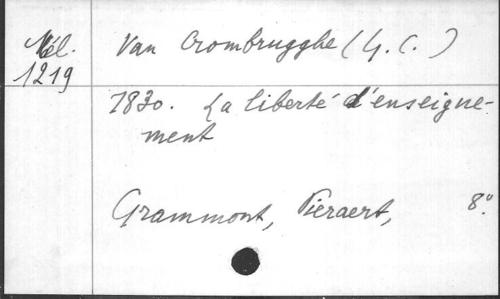 Mél. Van Crombrugghe (G. C. )
1219
1830. La liberté d'enseigne-
ment
Grammont, Pieraert, 8.°